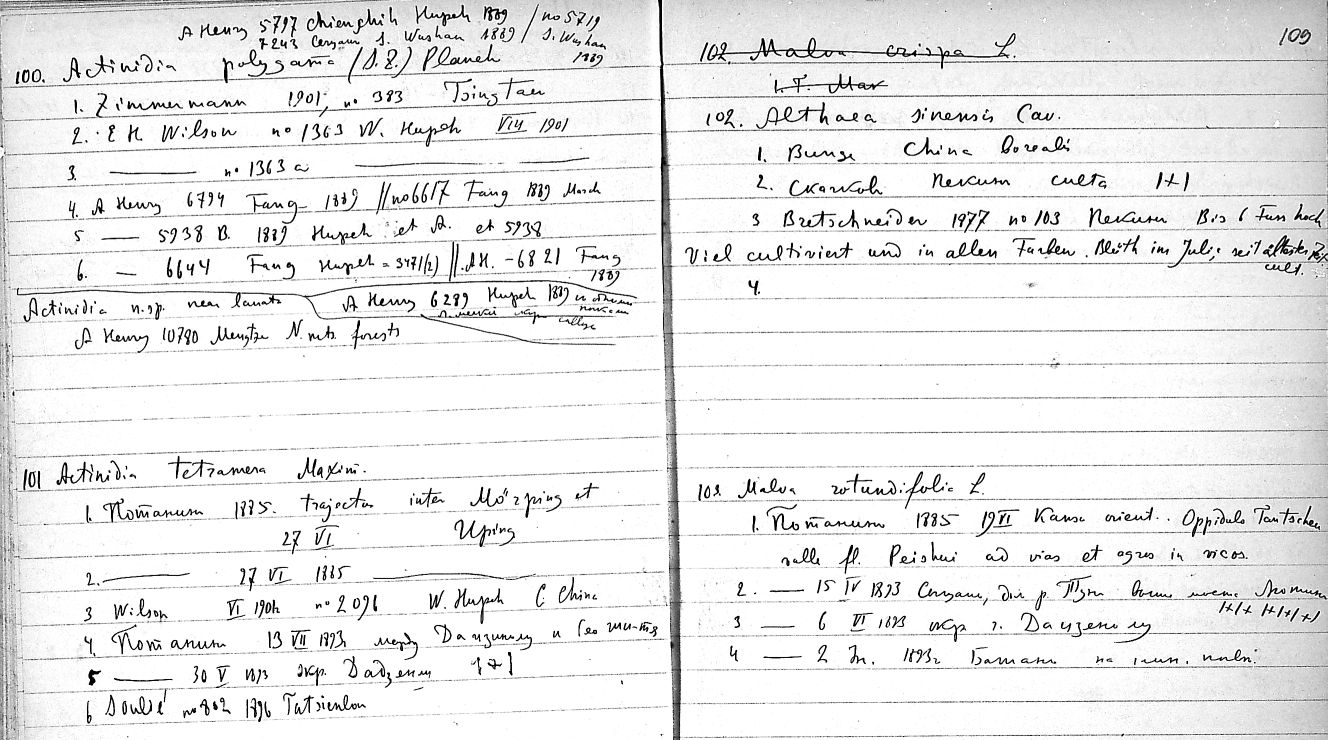 A Henry 5797 Chienghih Hupeh 1889 / no 5719
7243 S. Wushan 1889 / S. Wushan 1889
100. Actinidia polygama (S.Z.) Planch
1. Zimmermann 1901, no 383 Tsingtau
2. E H. Wilson no 1363 W. Hupeh VIII 1901
3. —— no 1363 a ——
4. A Henry 6794 Fang 1889 // no 6617 Fang 1889 March
5 —— 5938 B. 1889 Hupeh et A. et 5938
6. — 6644 Fang Hupeh = 3471(2) // A.H. - 6821 Fang 1889
Actinidia n.sp. near lanata
A Henry 6289 Hupeh 1889
A Henry 10780 Mengtze N. mts. forests
101 Actinidia tetramera Maxim.
1. Потанин 1885. trajectus inter Mörping et
27 VI Uping
2. —— 27 VI 1885 ——
3 Wilson VI 1901 no 2096 W. Hupeh C China
4. Потанин 13 VII 1893 между Дацзинлу и
5 —— 30 V 1893 окр. Дадзенлу |+|
6 Soulié no 802 1896 Tatsienlou
109
102. Malva crispa L.
102. Althaea sinensis Cav.
1. Bunge China borealis
2. Скачков Пекин culta |+|
3 Bretschneider 1877 no 103 Пекин Bis 6 Fuss hoch
Viel cultiviert und in allen Farben. Blüth im Juli, seit ältester Zeit cult.
4.
103. Malva rotundifolia L.
1. Потанин 1885 19 VI Kansu orient. Oppidulo Tantschen
valle fl. Peishui ad vias et agros in vicos.
2. — 15 IV 1893 Сычуань, дол. р. выше
3 — 6 VI 1893 окр. г. Дацзенлу |+|+ |+|+|+|
4 — 2 1893г Батанъ на